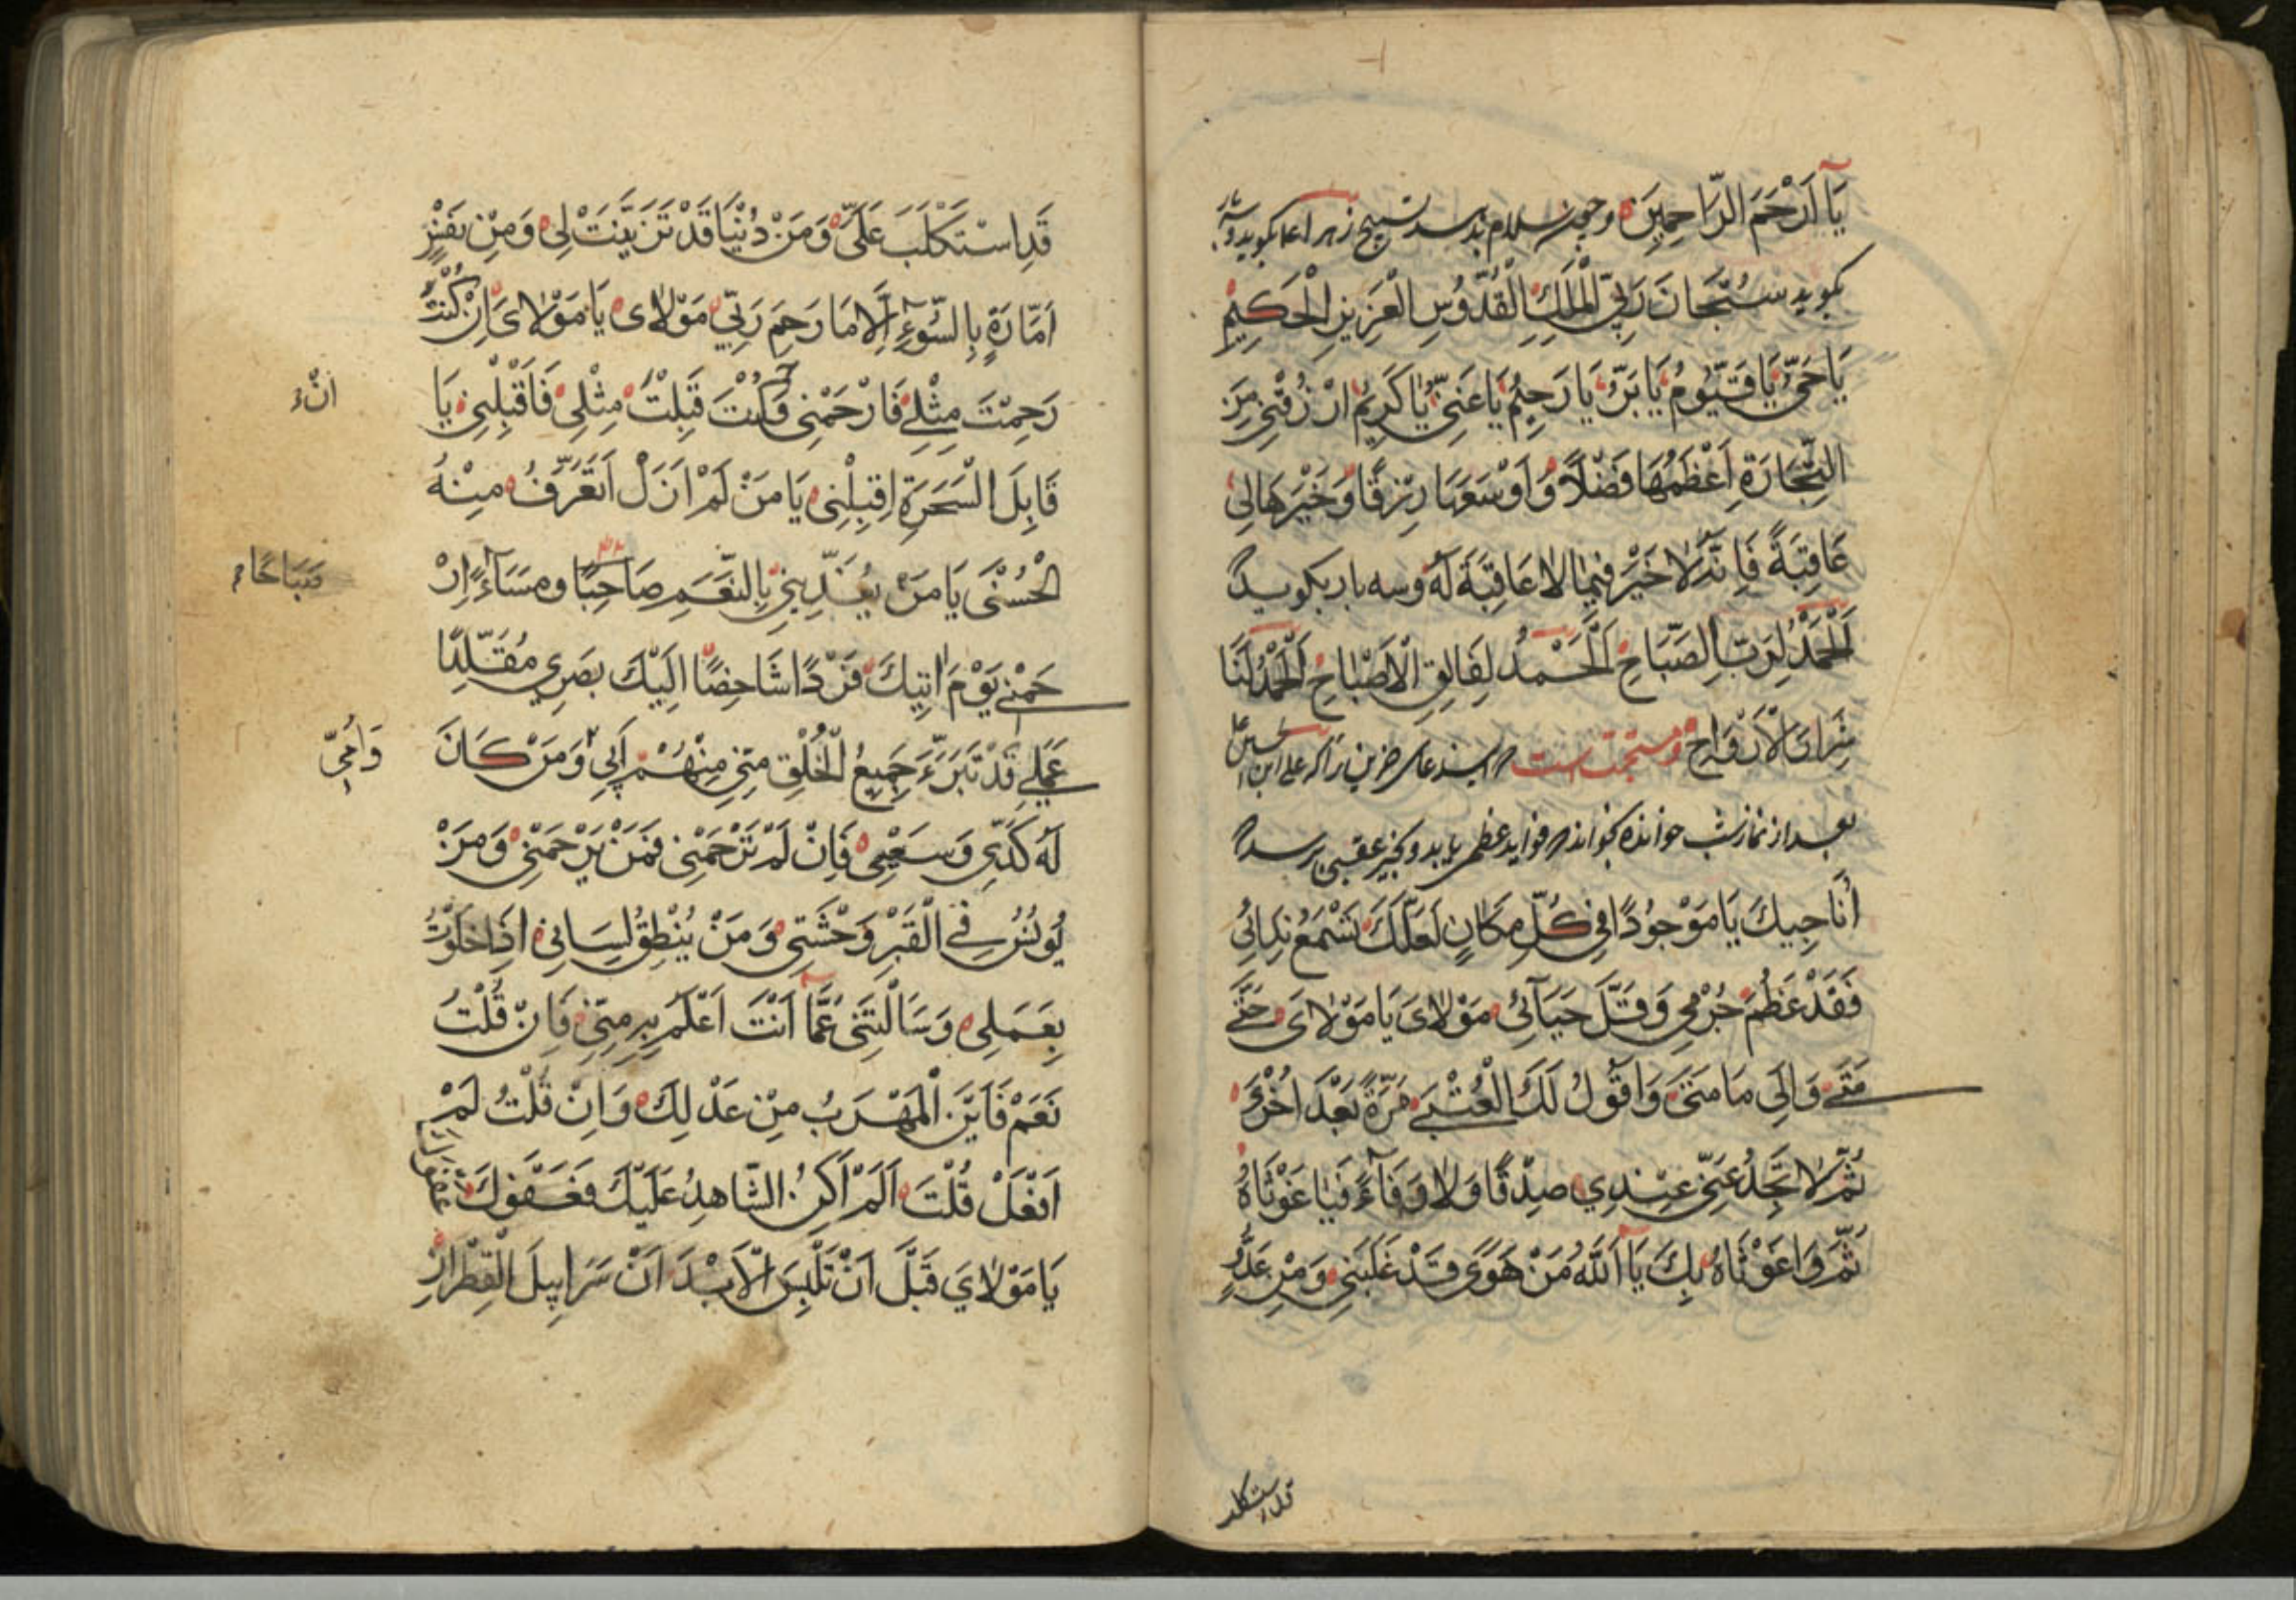 يَا اَرْحَمَ الرَّاحِمِينَ و چون سلام بدهد تسبيح زهرا عا بكويد و
بكويد سُبْحَانَ رَبِّيَ الْمَلِكِ الْقُدُّوسِ الْعَزِيزِ الْحَكِيمِ
يَا حَيُّ يَا قَيُّومُ يَا بَرُّ يَا رَحِيمُ يَا غَنِيُّ يَا كَرِيمُ ارْزُقْنِي مِنَ
التِّجَارَةِ اَعْظَمَهَا فَضْلاً وَ اَوْسَعَهَا رِزْقًا وَ خَيْرَهَا لِي
عَاقِبَةً فَاِنَّهُ لَا خَيْرَ فِيمَا لَا عَاقِبَةَ لَهُ و سه بار بكويد
اَلْحَمْدُ لِرَبِّ الصَّبَاحِ اَلْحَمْدُ لِفَالِقِ الْاَصْبَاحِ اَلْحَمْدُ لَنَا
شِرِ الْاَرْوَاحِ و مستحبت است دعاى حزين را كه على ابن الحسين ع
بعد از نماز شب خوانده بخواند فوايد عظمى يابد و بخير عقبى برسد
اُنَاجِيكَ يَا مَوْجُودًا فِي كُلِّ مَكَانٍ لَعَلَّكَ تَسْمَعُ نِدَائِي
فَقَدْ عَظُمَ جُرْمِي وَ قَلَّ حَيَائِي مَوْلَايَ يَا مَوْلَايَ حَتَّى
مَتَى وَ اِلَى مَا مَتَى وَ اَقُولُ لَكَ الْعُتْبَى مَرَّةً بَعْدَ اُخْرَى
ثُمَّ لَا تَجِدُ عَنِّي عِنْدِي صِدْقًا وَلَا وَفَاءً فَيَا غَوْثَاهُ
ثُمَّ وَا غَوْثَاهُ بِكَ يَا اَللّٰهُ مَنْ هَوًى قَدْ غَلَبَنِي وَ مِنْ عَدُوٍّ
قد استكلب
قَدِ اسْتَكْلَبَ عَلَيَّ وَ مَنْ دُنْيَا قَدْ تَزَيَّنَتْ لِي وَ مِنْ نَفْسٍ
اَمَّارَةٍ بِالسُّوءِ اِلَّا مَا رَحِمَ رَبِّي مَوْلَاى يَا مَوْلَاىَ اِنْ كُنْتَ
رَحِمْتَ مِثْلِي فَارْحَمْنِي وَ كُنْتَ قَبِلْتَ مِثْلِي فَاقْبِلْنِي يَا
اِنْ
قَابِلَ السَّحَرَةِ اِقْبِلْنِي يَا مَنْ لَمْ اَزَلْ اَتَعَرَّفُ مِنْهُ
الْحُسْنَى يَا مَنْ يُغَذِّينِي بِالنِّعَمِ صَاحِبًا و مَسَاءً اِرْ
صَبَاحًا
حَمْنِي يَوْمَ اٰتِيكَ فَرْدًا شَاخِصًا اِلَيْكَ بَصَرِي مُقَلِّدًا
عَمَلِي قَدْ تَبَرَّءَ جَمِيعُ الْخَلْقِ مِنِّي مِنْهُمْ اَبِي وَ مَنْ كَانَ
وَاُمِّي
لَهُ كَدِّي وَ سَعْيِي فَاِنْ لَمْ تَرْحَمْنِي فَمَنْ يَرْحَمْنِي وَ مَنْ
يُونُسُ فِي الْقَبْرِ وَحْشَتِي وَ مَنْ يُنْطِقُ لِسَانِي اِذَا خَلَوْتُ
بِعَمَلِي وَ سَالْتَنِي عَمَّا اَنْتَ اَعْلَمُ بِهِ مِنِّي فَاِنْ قُلْتُ
نَعَمْ فَاَيْنَ الْمَهْرَبُ مِنْ عَدْلِكَ وَ اِنْ قُلْتُ لَمْ
اَفْعَلْ قُلْتَ اَلَمْ اَكُنِ الشَّاهِدُ عَلَيْكَ فَعَفْوَكَ
يَا مَوْلَايَ قَبْلَ اَنْ تَلْبَسَ الْاَبْدَانَ سَرَابِيلَ الْقِطْرَانِ